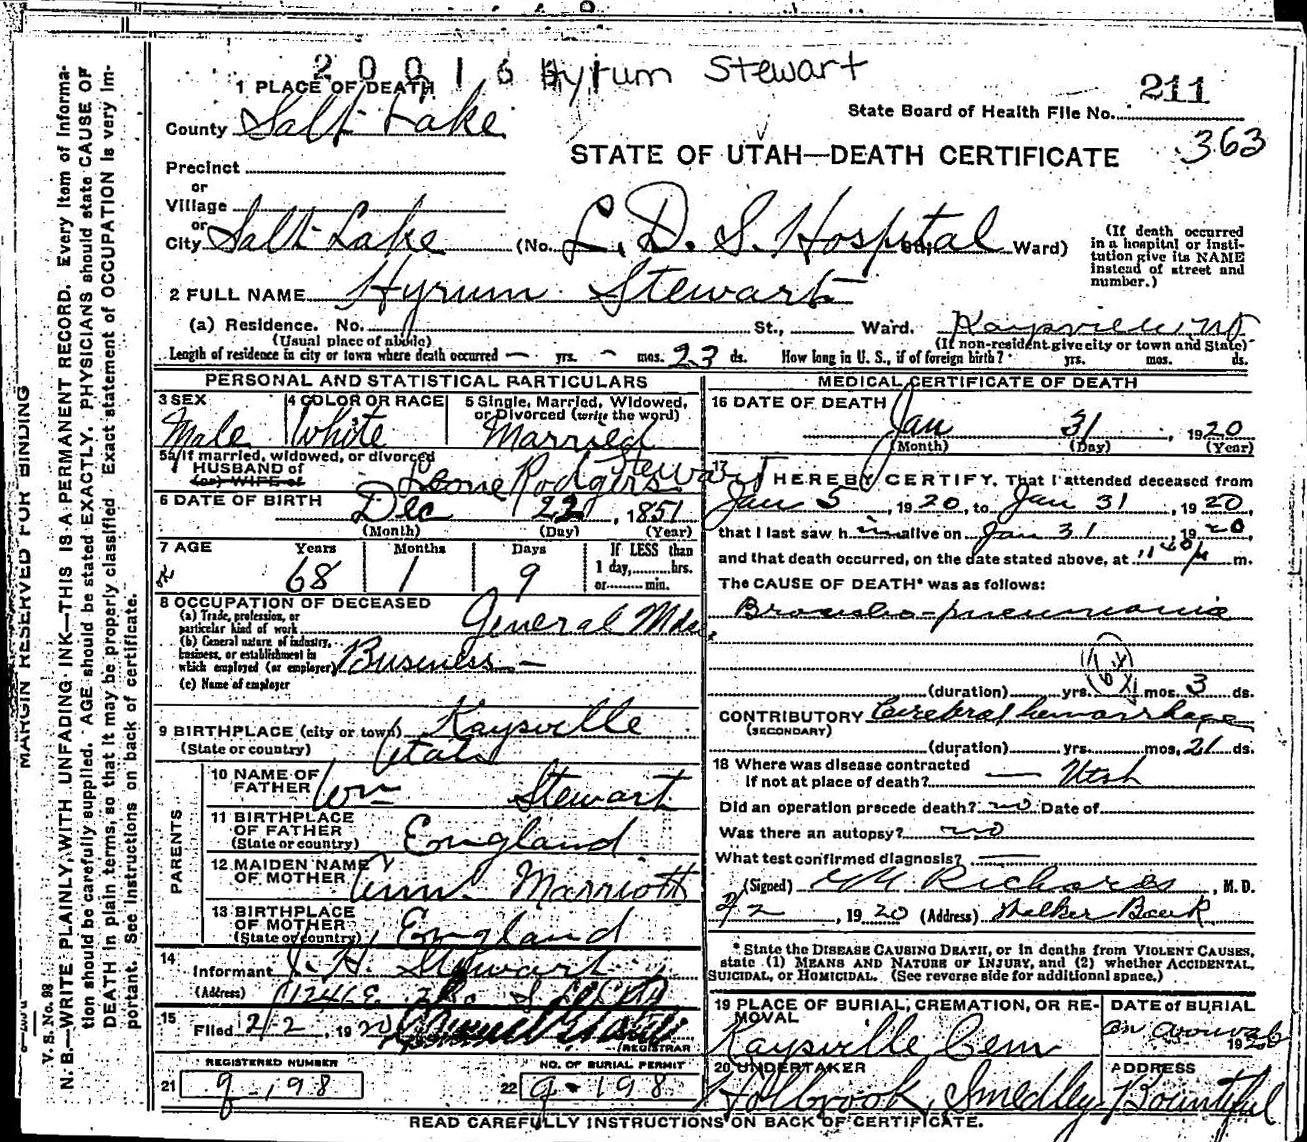 20016 Hyrum Stewart
1 PLACE OF DEATH
211
State Board of Health File No.
County Salt Lake
363
STATE OF UTAH—DEATH CERTIFICATE
Precinct
or
Village
or
City Salt Lake (No. L. D. S. Hospital Ward)
(If death occurred in a hospital or insti-
tution give its NAME
instead of street and
number.)
2 FULL NAME Hyrum Stewart
(a) Residence. No. St., Ward. Kaysville
(Usual place of abode) (If non-resident give city or town and State)
Length of residence in city or town where death occurred — yrs. — mos. 23 ds. How long in U. S., if of foreign birth? yrs. mos. ds.
PERSONAL AND STATISTICAL PARTICULARS
3 SEX 4 COLOR OR RACE 5 Single, Married, Widowed,
or Divorced (write the word)
Male White Married
5a If married, widowed, or divorced
HUSBAND of
(or) WIFE of Leone Rodgers Stewart
6 DATE OF BIRTH
Dec 22, 1851
(Month) (Day) (Year)
7 AGE Years Months Days If LESS than
1 day,......hrs.
or......min.
68 1 9
8 OCCUPATION OF DECEASED
(a) Trade, profession, or
particular kind of work General Mdse
(b) General nature of industry,
business, or establishment in
which employed (or employer) Business —
(c) Name of employer
9 BIRTHPLACE (city or town) Kaysville
(State or country) Utah
PARENTS
10 NAME OF
FATHER Wm Stewart
11 BIRTHPLACE
OF FATHER
(State or country) England
12 MAIDEN NAME
OF MOTHER Ann Marriott
13 BIRTHPLACE
OF MOTHER
(State or country) England
14
Informant J. H. Stewart
(Address) 1246 E.
15
Filed 2/2, 1920
REGISTRAR
REGISTERED NUMBER NO. OF BURIAL PERMIT
21 9-198 22 9-198
MEDICAL CERTIFICATE OF DEATH
16 DATE OF DEATH
Jan 31, 1920
(Month) (Day) (Year)
17 I HEREBY CERTIFY, That I attended deceased from
Jan 5, 1920, to Jan 31, 1920,
that I last saw him alive on Jan 31, 1920,
and that death occurred, on the date stated above, at m.
The CAUSE OF DEATH* was as follows:
Broncho-pneumonia
(duration) yrs. mos. 3 ds.
CONTRIBUTORY Cerebral hemorrhage
(SECONDARY)
(duration) yrs. mos. 21 ds.
18 Where was disease contracted
If not at place of death? — Utah
Did an operation precede death? no Date of
Was there an autopsy? no
What test confirmed diagnosis? —
(Signed) Richards, M. D.
2/2, 1920 (Address) Walker Bank
* State the DISEASE CAUSING DEATH, or in deaths from VIOLENT CAUSES,
state (1) MEANS AND NATURE OF INJURY, and (2) whether ACCIDENTAL,
SUICIDAL, or HOMICIDAL. (See reverse side for additional space.)
19 PLACE OF BURIAL, CREMATION, OR RE-
MOVAL
Kaysville Cem
DATE OF BURIAL
1920
20 UNDERTAKER
Holbrook, Smedley
ADDRESS
Bountiful
READ CAREFULLY INSTRUCTIONS ON BACK OF CERTIFICATE.
MARGIN RESERVED FOR BINDING
V. S. No. 98
N. B.—WRITE PLAINLY, WITH UNFADING INK—THIS IS A PERMANENT RECORD. Every item of informa-
tion should be carefully supplied. AGE should be stated EXACTLY. PHYSICIANS should state CAUSE OF
DEATH in plain terms, so that it may be properly classified. Exact statement of OCCUPATION is very im-
portant. See instructions on back of certificate.